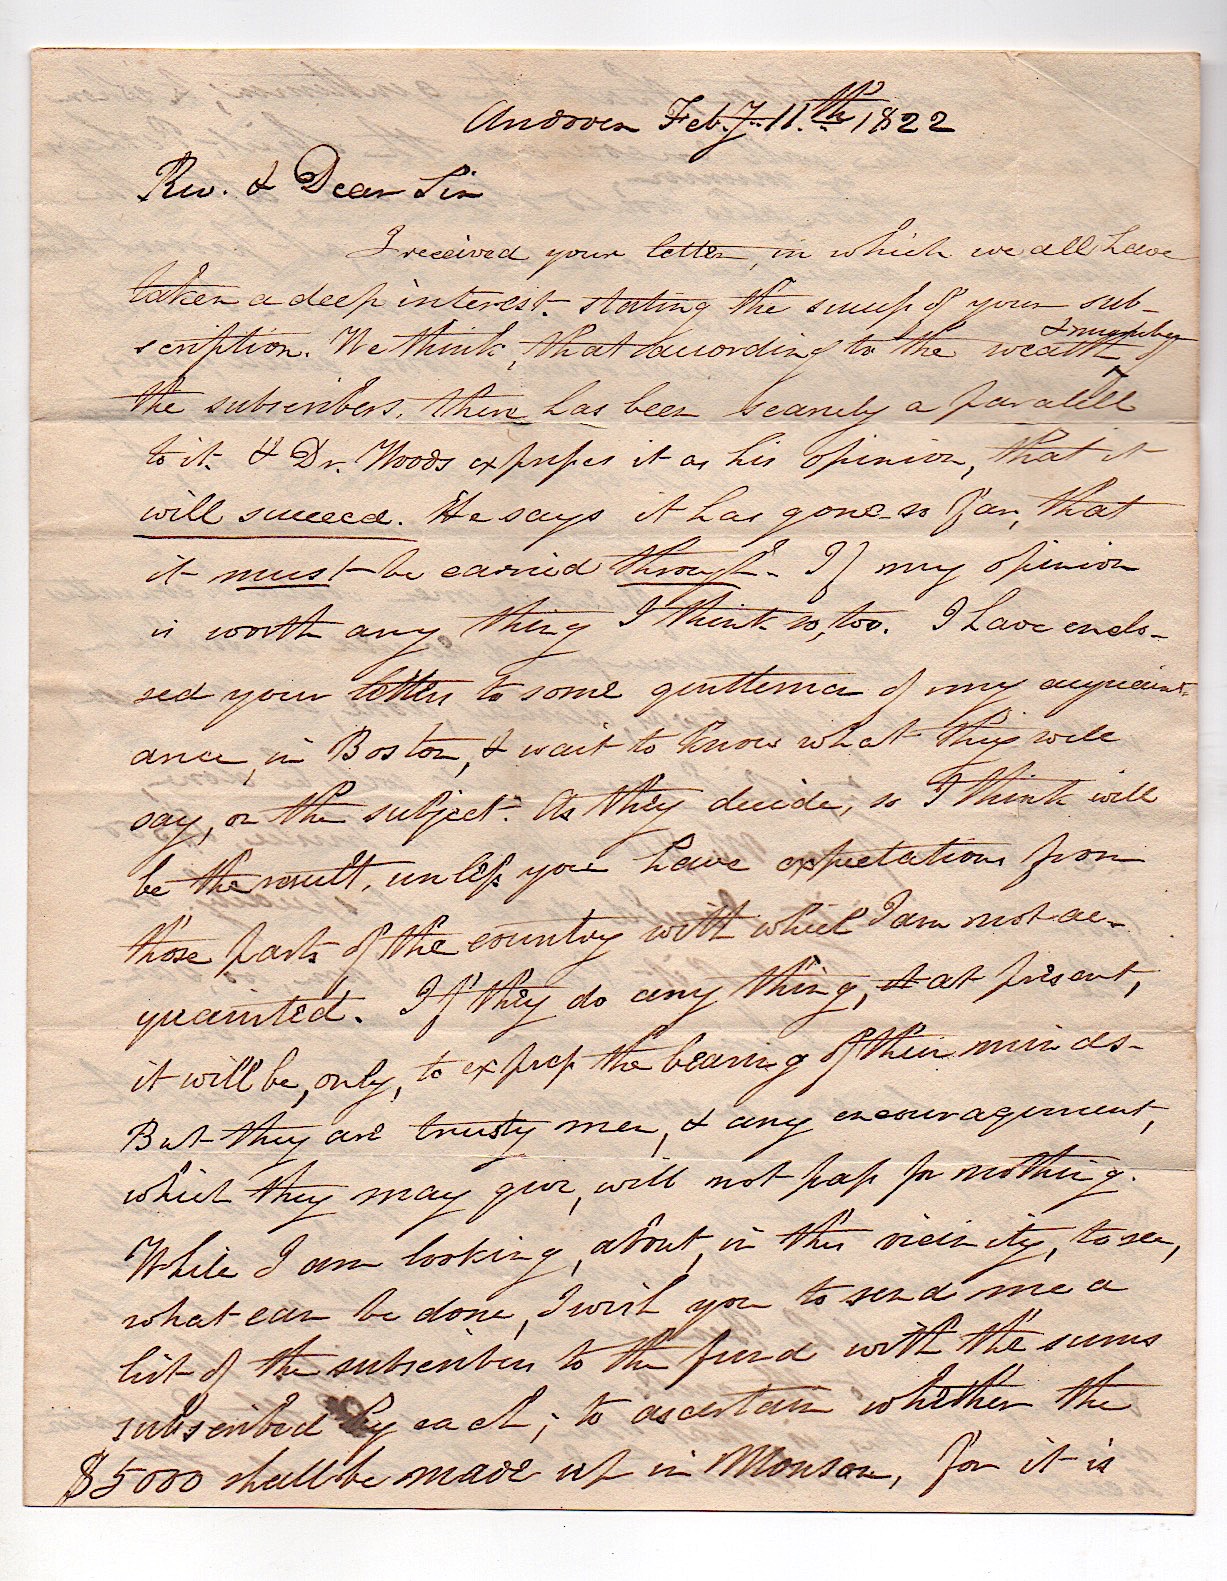 Andover Feb. 7. 11.th 1822
Rev. & Dear Sir
I received your letter, in which we all have
taken a deep interest. stating the success of your sub-
scription. We think, that according to the wealth & number of
the subscribers, there has been scarcely a paralell
to it. & Dr. Woods expresses it as his opinion, that it
will succeed. He says it has gone so far, that
it must be carried through. If my opinion
is worth any thing I think so, too. I have enclo-
sed your letter to some gentlemen of my acquaint-
ance, in Boston, & wait to know what they will
say, on the subject. As they decide, so I think will
be the result, unless you have expectations from
those parts of the country with which I am not ac-
quainted. If they do any thing, at at present,
it will be, only, to express the bearing of their minds-
But they are trusty men, & any encouragement,
which they may give, will not pass for nothing.
While I am looking, about, in this vicinity, to see,
what can be done, I wish you to send me a
list of the subscribers to the fund with the sums
subscribed by each; to ascertain whether the
$5000 shall be made up in Monson, for it is